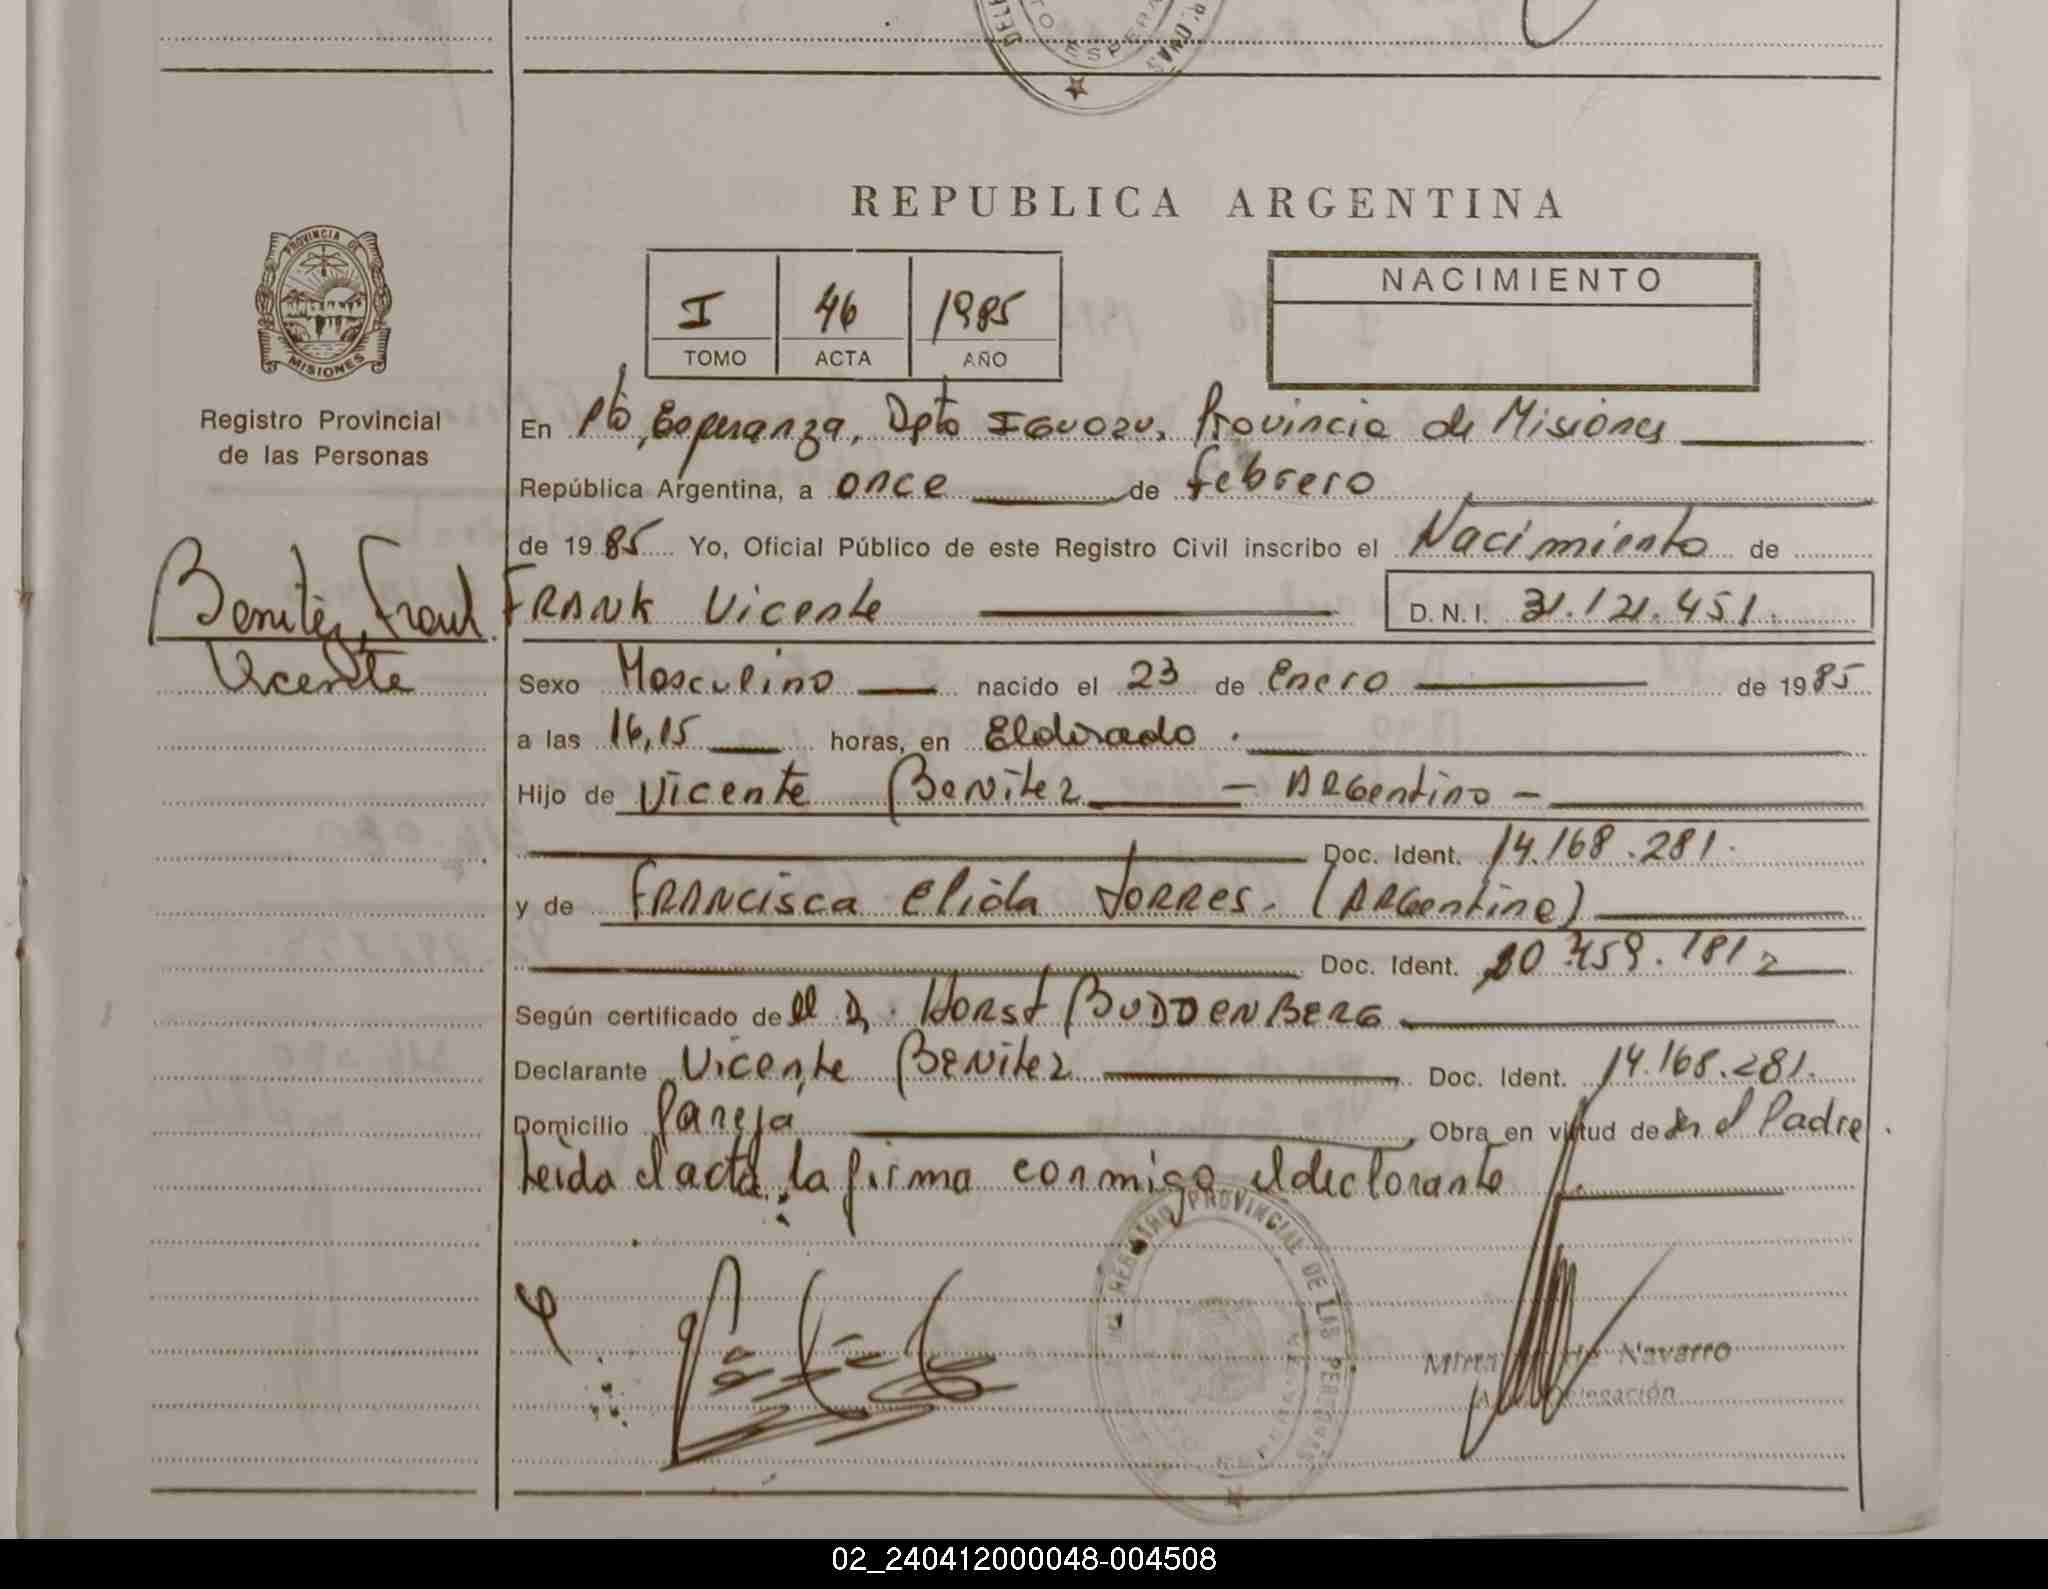 REPUBLICA ARGENTINA
PROVINCIA DE
MISIONES
Registro Provincial
de las Personas
I 46 1985
TOMO ACTA AÑO
NACIMIENTO
En Pto, Esperanza, Dpto Iguazu, Provincia de Misiones
República Argentina, a once de febrero
de 1985 Yo, Oficial Público de este Registro Civil inscribo el Nacimiento de
Benitez, Frank
Vicente
FRANK Vicente D.N.I. 31.121.451.
Sexo Masculino nacido el 23 de Enero de 1985
a las 16,15 horas, en Eldorado.
Hijo de Vicente Benitez — Argentino —
Doc. Ident. 14.168.281.
y de FRANCisca Elida TORRES. (ARGentina)
Doc. Ident. 20.459.181
Según certificado de el D. Horst BUDDENBERG
Declarante Vicente Benitez Doc. Ident. 14.168.281.
Domicilio Pareja Obra en virtud de ser el Padre.
Leida el acta, la firma conmigo el declarante
REGISTRO PROVINCIAL DE LAS PERSONAS
Navarro
Delegación
02_240412000048-004508